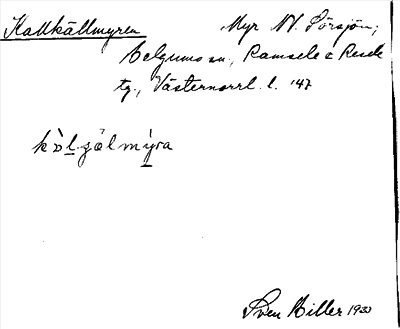 Kallkällmyren Myr NV. Sörsjön;
Helgums sn., Ramsele o Resele
tg., Västernorrl. l. '47
kòl̲zälmýra
Sven Hiller 1933